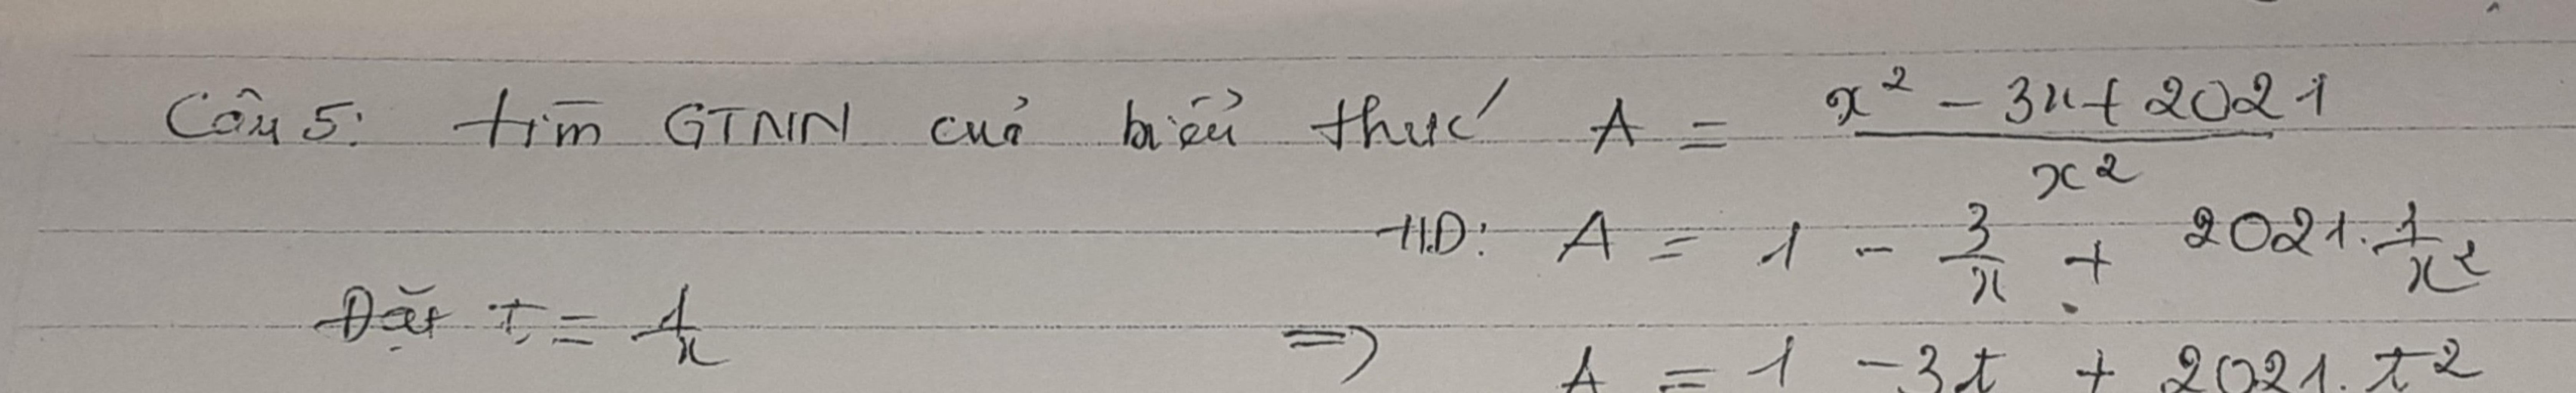 Câu 5: tìm GTNN của biểu thức A = \frac{x^2 - 3x + 2021}{x^2}
HD: A = 1 - \frac{3}{x} + 2021 . \frac{1}{x^2}
Đặt t = \frac{1}{x} => A = 1 - 3t + 2021 . t^2